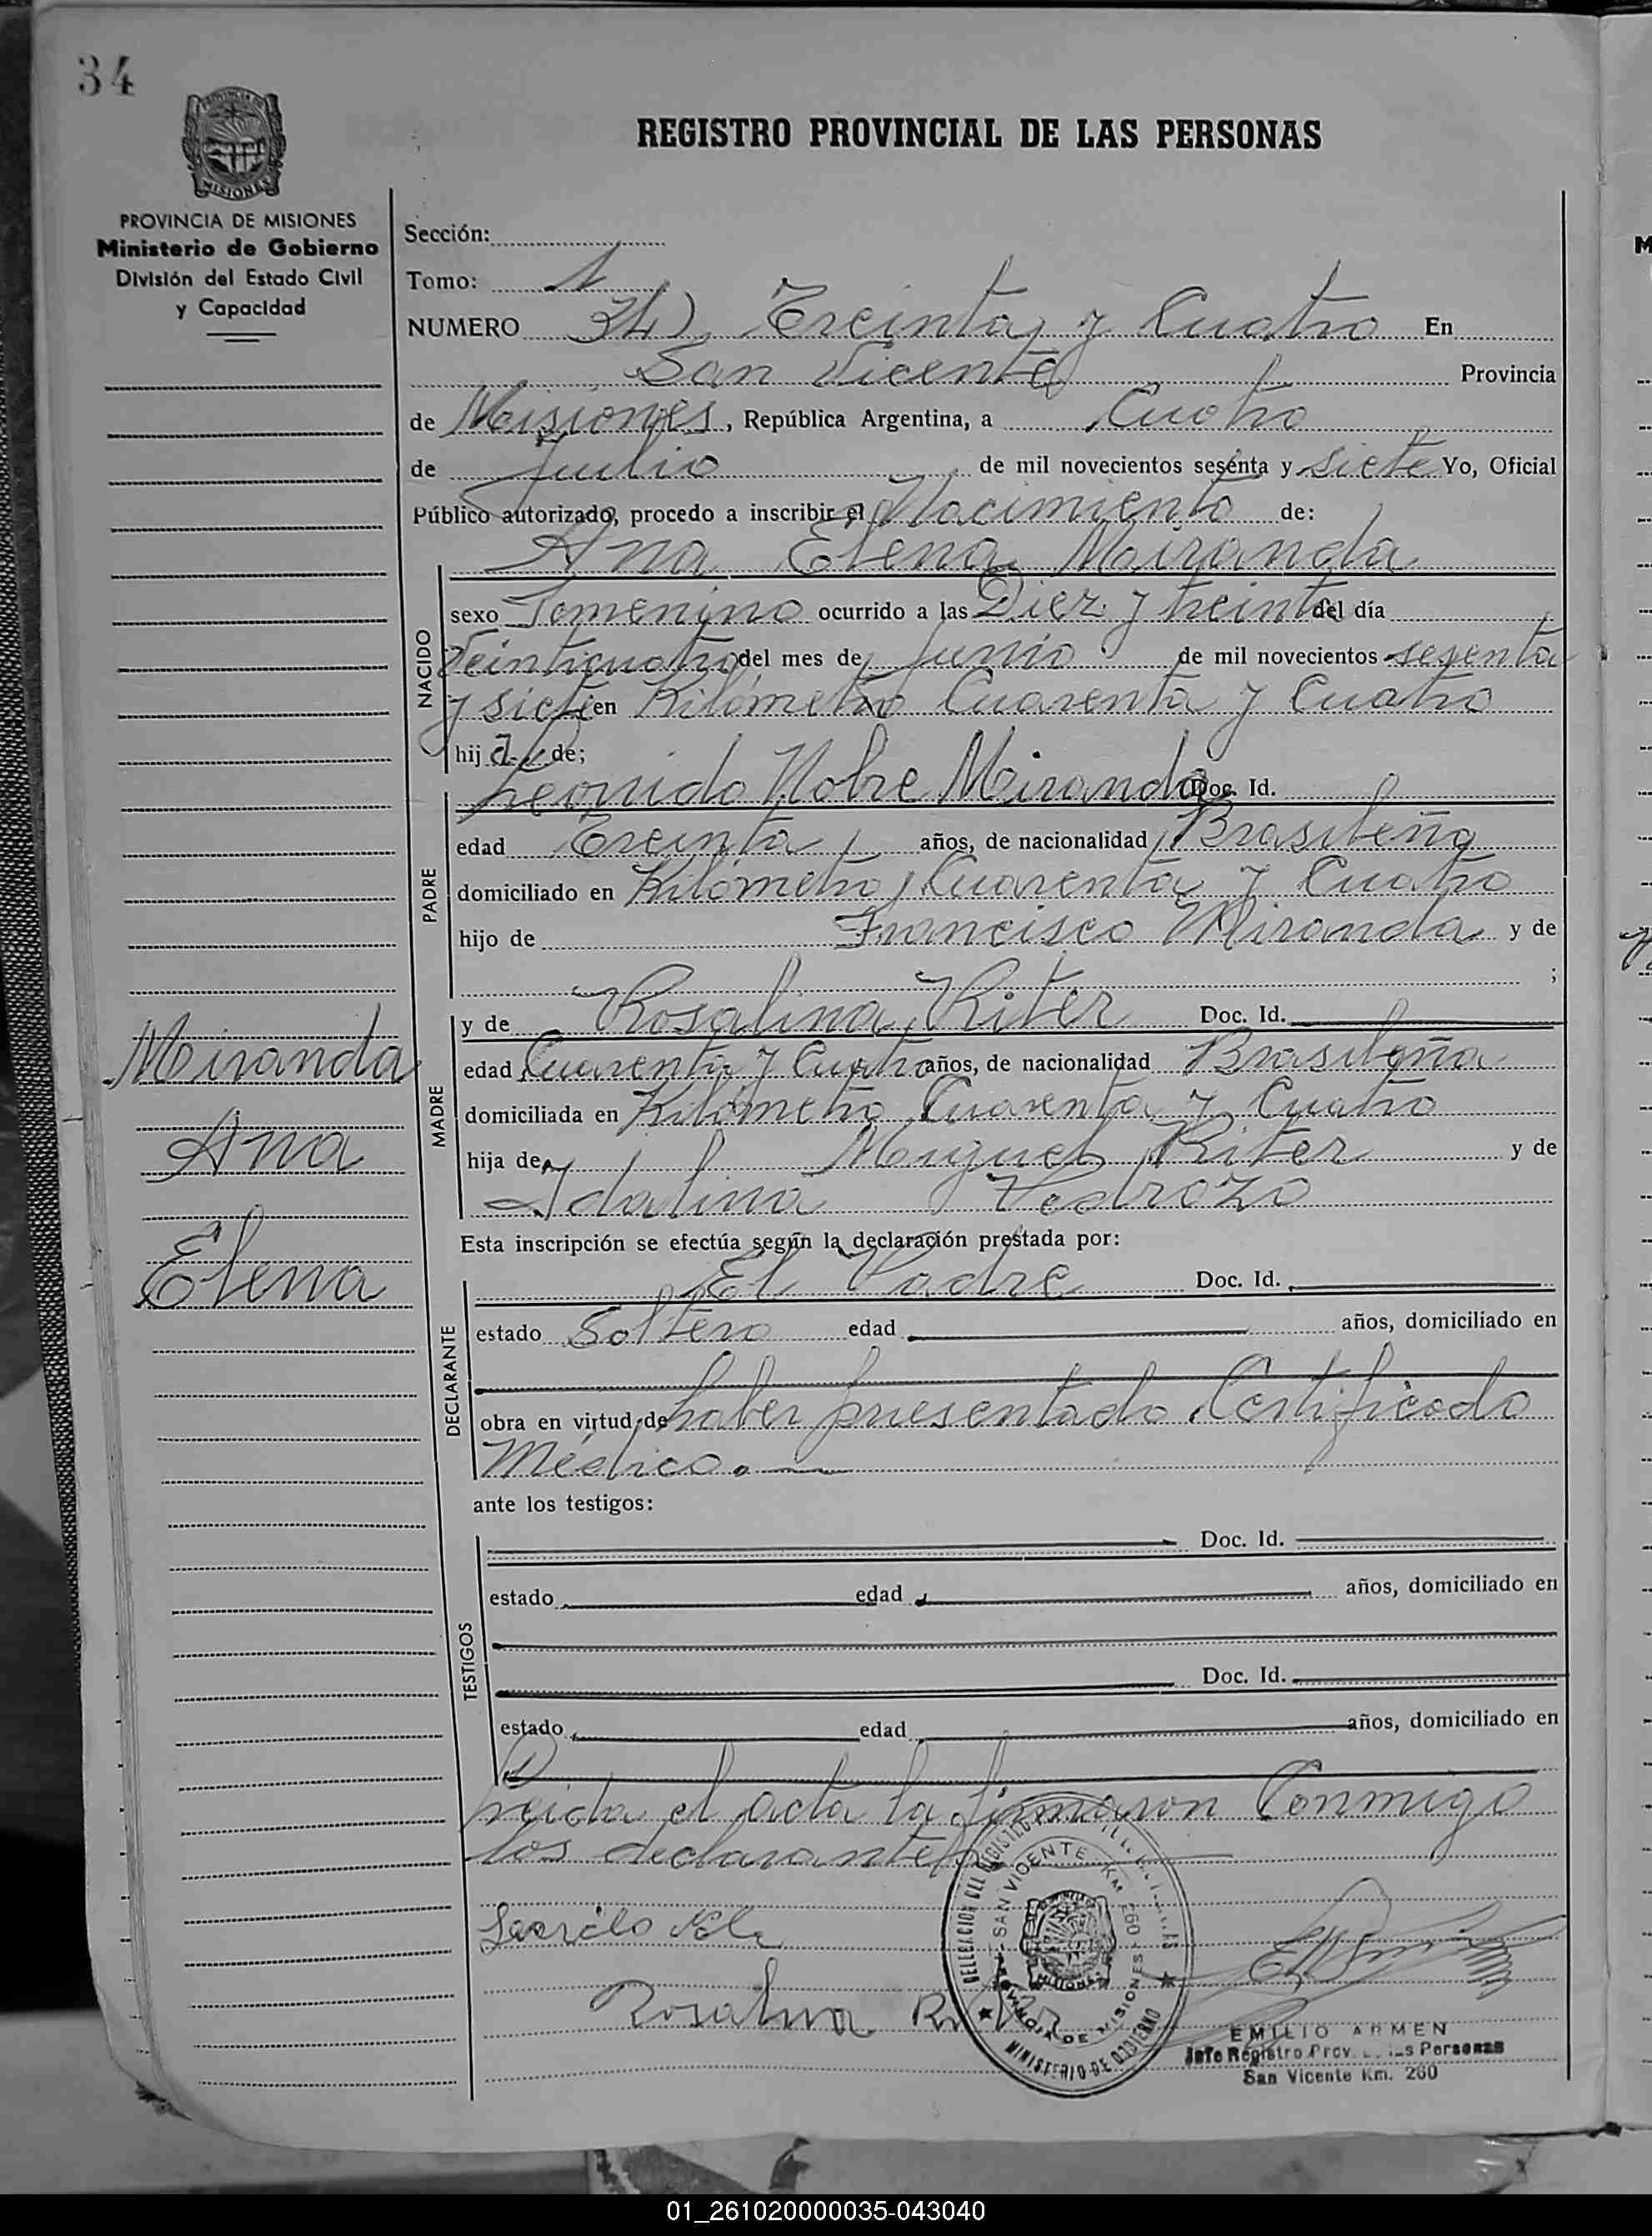 34
PROVINCIA DE MISIONES
Ministerio de Gobierno
División del Estado Civil
y Capacidad
REGISTRO PROVINCIAL DE LAS PERSONAS
Sección:
Tomo: 1
NUMERO 34) Treinta y Cuatro En
San Vicente Provincia
de Misiones, República Argentina, a Cuatro
de Julio de mil novecientos sesenta y siete Yo, Oficial
Público autorizado, procedo a inscribir el Nacimiento de:
Ana Elena Miranda
NACIDO
sexo Femenino ocurrido a las Diez y treinta del día
Veinticuatro del mes de Junio de mil novecientos sesenta
y siete en Kilómetro Cuarenta y Cuatro
hija de;
PADRE
Leonido Nobre Miranda Doc. Id.
edad Treinta años, de nacionalidad Brasileña
domiciliado en Kilómetro Cuarenta y Cuatro
hijo de Francisco Miranda y de
;
MADRE
y de Rosalina Riter Doc. Id.
edad Cuarenta y Cuatro años, de nacionalidad Brasileña
domiciliada en Kilómetro Cuarenta y Cuatro
hija de Miguel Riter y de
Idalina Pedrozo
Miranda
Ana
Elena
Esta inscripción se efectúa según la declaración prestada por:
DECLARANTE
El Padre Doc. Id.
estado Soltero edad años, domiciliado en
obra en virtud de haber presentado Certificado
Médico.
ante los testigos:
TESTIGOS
Doc. Id.
estado edad años, domiciliado en
Doc. Id.
estado edad años, domiciliado en
Leida el acta la firmaron Conmigo
los declarantes
SAN VICENTE KM 260
PROVINCIA DE MISIONES
MINISTERIO DE GOBIERNO
Rosalina
EMILIO ARMEN
Jefe Registro Prov. Personas
San Vicente Km. 260
01_261020000035-043040